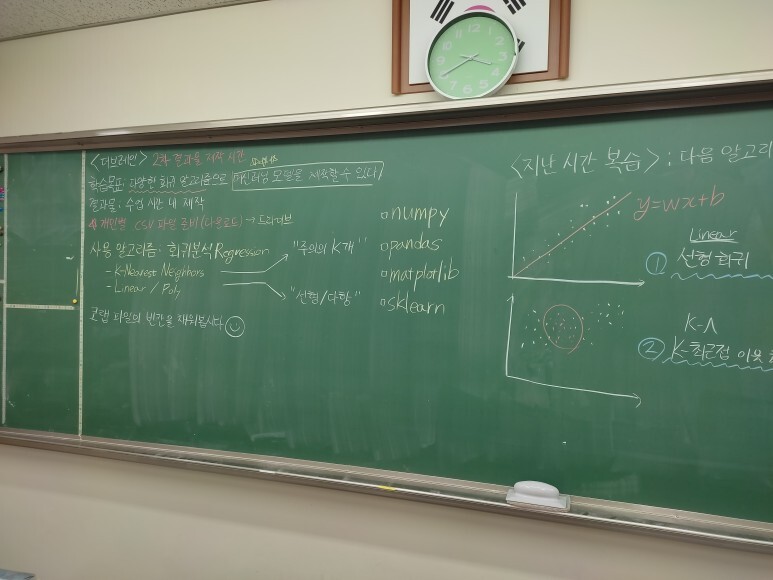 <더브레인> 2차 결과물 제작 시간
학습목표: 다양한 회귀 알고리즘으로 머신러닝 모델을 제작할 수 있다
결과물: 수업 시간 내 제작
개인별 CSV 파일 준비 (다운로드) → 드라이브
사용 알고리즘: 회귀분석 Regression
- K-Nearest Neighbors
- Linear / Poly
"주위의 K개"
"선형/다항"
코랩 파일의 빈칸을 채워봅시다
numpy
pandas
matplotlib
sklearn
<지난 시간 복습> ; 다음 알고리
y=wx+b
Linear
① 선형 회귀
K-
② K-최근접 이웃
12
1
2
3
4
5
6
7
8
9
10
11